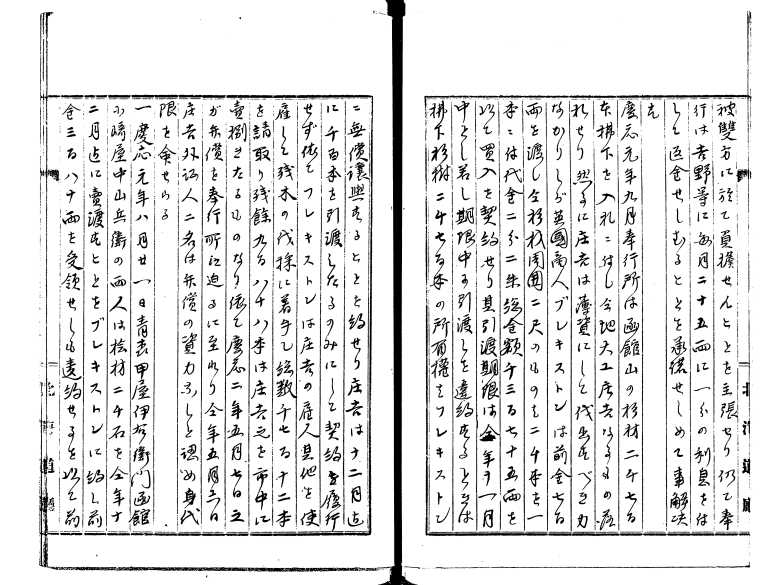 被双方に於て負擔せんことを主張せり仍て奉
行は吉野等に毎月二十五両に一分の利息を付
して返金せしむることを承諾せしめて事解決
す
慶応元年九月奉行所は函館山の杉材二千七百
本拂下を入札に付し今地大工庄吉なるもの落
札せり然るに庄吉は薄資にして伐出すべき力
なかりしが英國商人ブレキストンは前金七百
両を渡し全杉材周囲二尺のもの二千本を一
本に付代金二分二朱総金額千三百七十五両を
以て買入を契約せり其引渡期限は全年十一月
中とし若し期限中引渡しを違約するときは
拂下杉樹二千七百本の所有権をブレキストン
に無償譲與することを約せり庄吉は十二月迄
に千百本を引渡したるのみにして契約を履行
せず依てブレキストンは庄吉の雇人其他を使
雇して残木の伐採に着手し総数千七百十二本
を請取り残餘九百八十八本は庄吉之を市中に
賣捌きたるものなり依て慶応二年五月七日之
が弁償を奉行所に迫るに至れり全年五月
庄吉外証人二名は弁償の資力なしと認め身代
限を命せらる
一慶応元年八月廿一日青森甲屋伊右衛門函館
山崎屋中山兵衛の両人は桧材二千石を全年十
二月迄に賣渡すことをブレキストンに約し前
金三百八十両を受領せしも違約せるを以て前
北海道廳
北海道廳